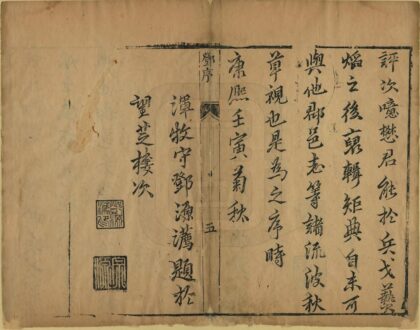 評次噫懋君能於兵戈爇
焰之後裒輯矩典自未可
與他郡邑志等諸流波秋
草視也是為之序時
康熙壬寅菊秋
鄧序
五
牧守鄧源題於
望芝樓次